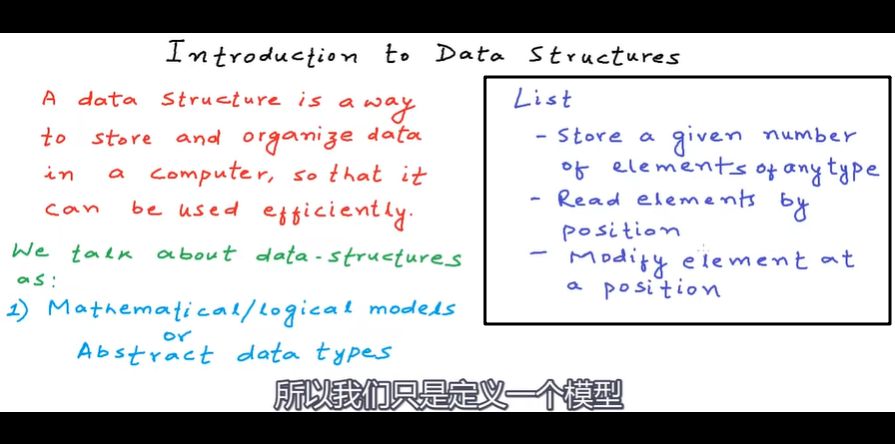 Introduction to Data Structures
A data structure is a way
to store and organize data
in a computer, so that it
can be used efficiently.
We talk about data-structures
as:
1) Mathematical/logical models
or
Abstract data types
List
- Store a given number
of elements of any type
- Read elements by
position
- Modify element at
a position
所以我们只是定义一个模型